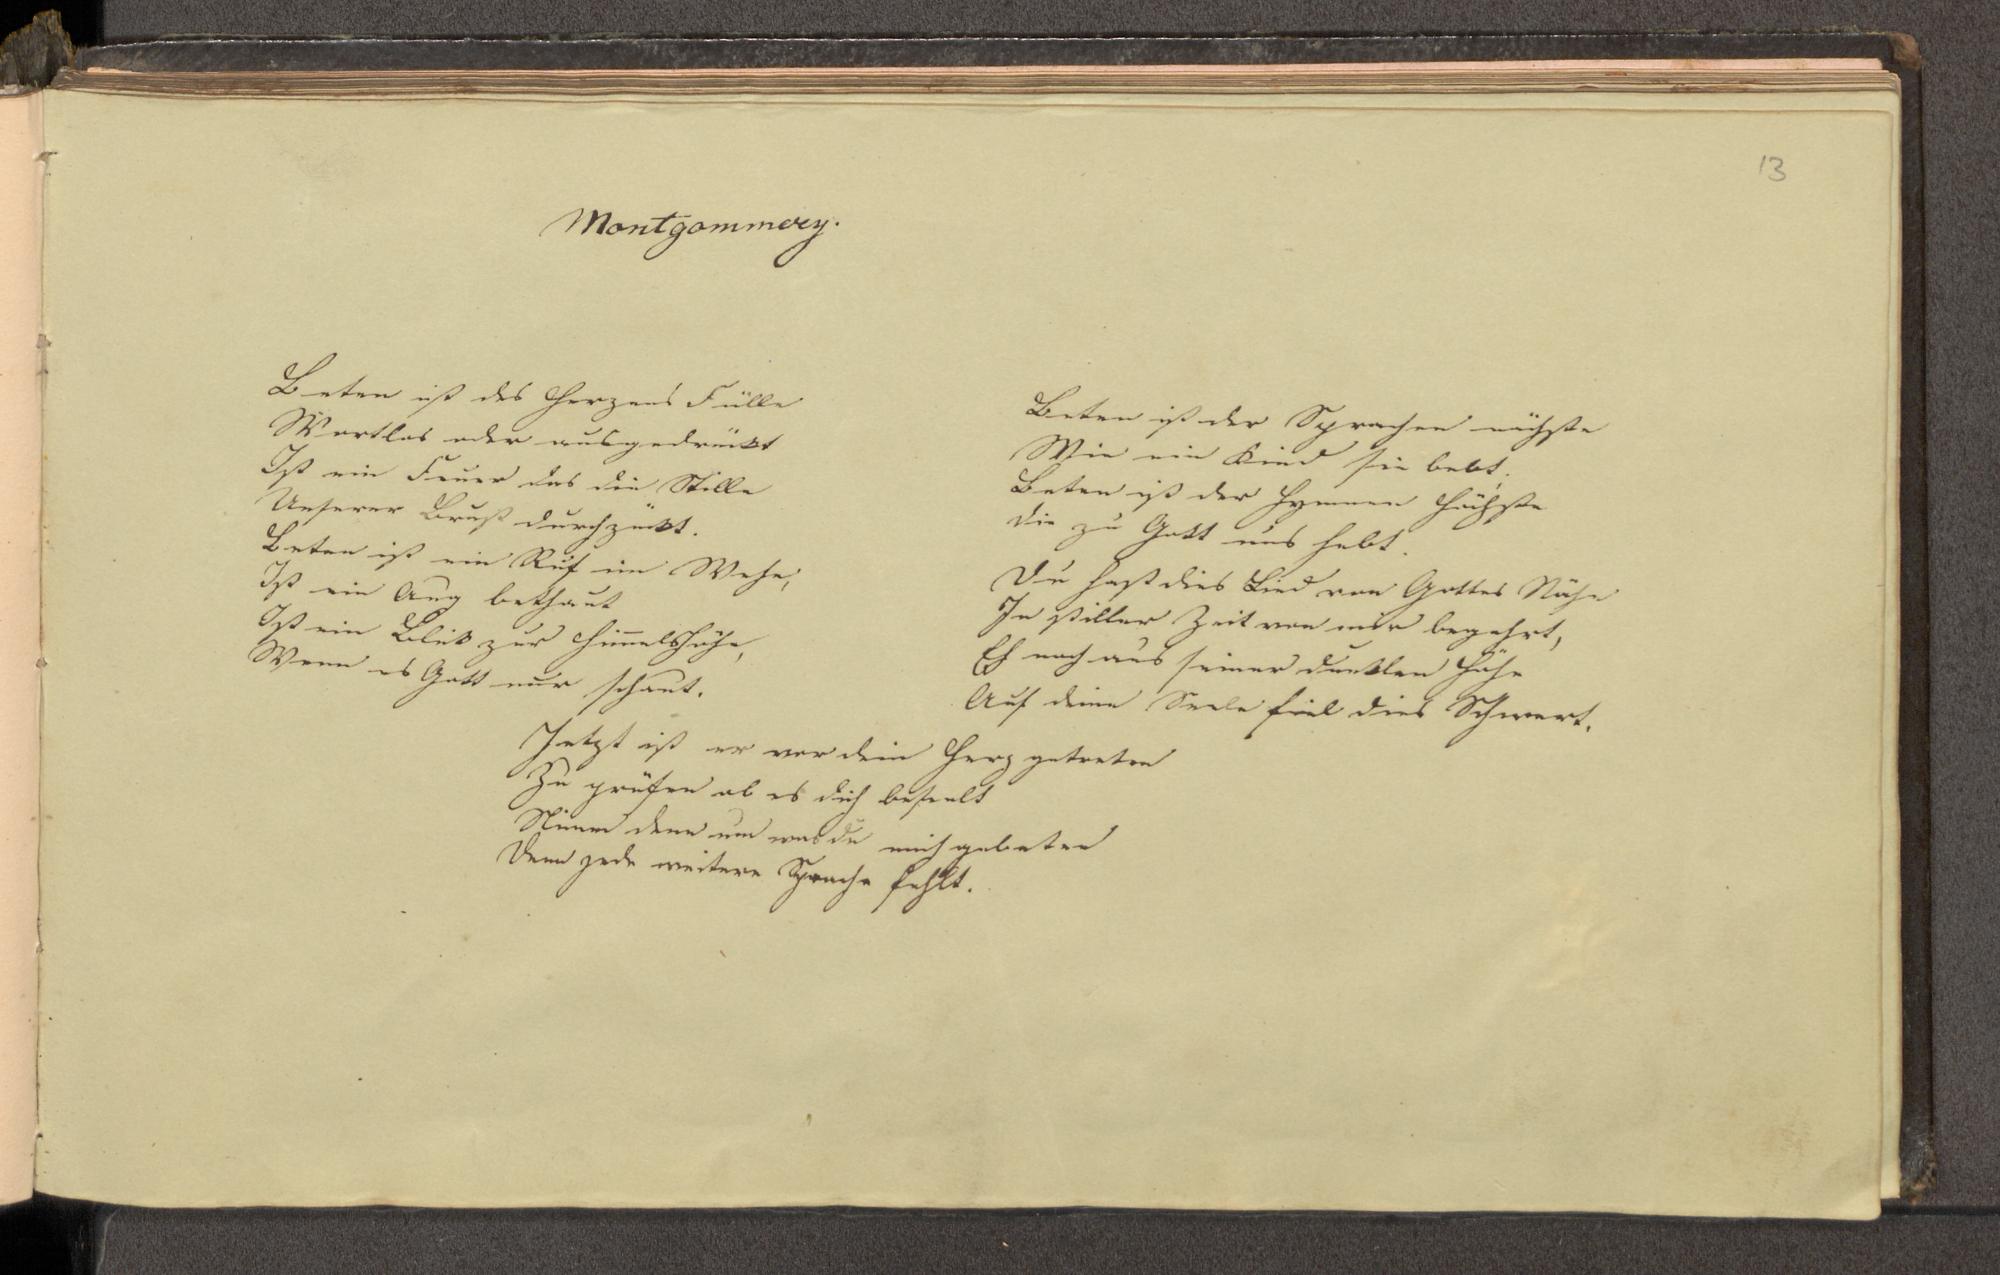 13
Montgommery.
Beten ist des Herzens Fülle
Wortlos oder ausgedrückt
Ist ein Feuer das die Stille
Unserer Brust durchzückt.
Beten ist ein Ruf im Wehe,
Ist ein Aug bethaut
Ist ein Blick zur Himelshöhe,
Wenn es Gott nur schaut.
Beten ist der Sprachen nächste
Wie ein Kind sie bebt,
Beten ist der Hymnen höchste
Die zu Gott uns hebt.
Du hast dies Lied von Gottes Nähe
In stiller Zeit von mir begehrt,
Eh noch aus seiner dunklen Höhe
Auf deine Seele fiel dies Schwert.
Jetzt ist er vor dein Herz getreten
Zu prüfen ob es dich beseelt
Nimm denn um was du mich gebeten
Denn jede weitere Sprache fehlt.